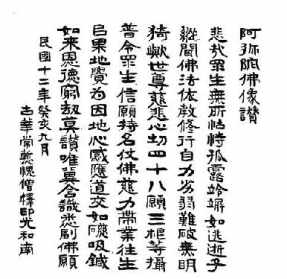 阿弥陀佛像讃
悲哉眾生無所怙恃孤露竛竮如逃逝子
縱聞佛法依教修行自力劣弱難破無明
猗歟世尊慈悲心切四十八願三根等攝
普令眾生信願持名仗佛慈力帶業往生
以果地覺為因地心感應道交如磁吸鍼
如来恩德窮劫莫讃唯冀含識悉副佛願
民國十二年癸亥九月
古莘常慙愧僧釋印光和南